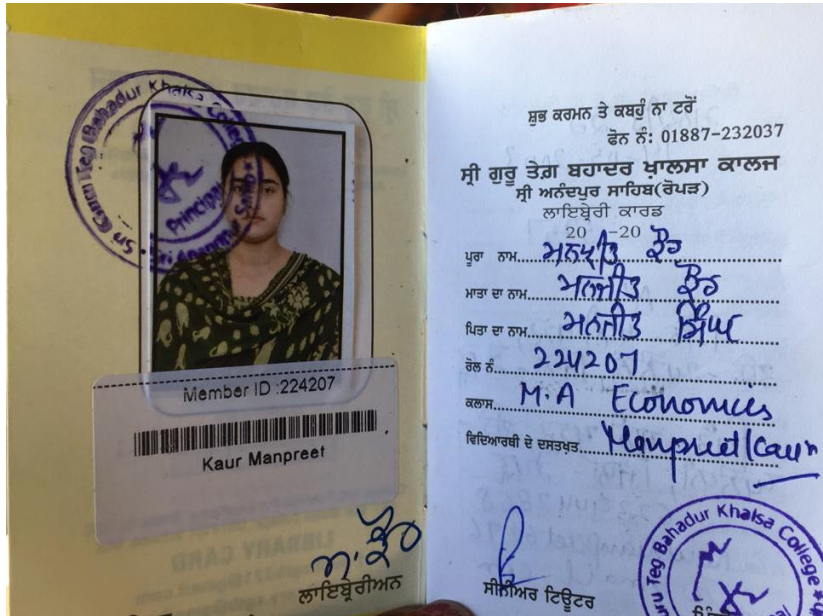 Sri Guru Teg Bahadur Khalsa College
Principal
Sri Anandpur Sahib
Member ID :224207
Kaur Manpreet
ਲਾਇਬ੍ਰੇਰੀਅਨ
ਸ਼ੁਭ ਕਰਮਨ ਤੇ ਕਬਹੁੰ ਨਾ ਟਰੋਂ
ਫੋਨ ਨੰ: 01887-232037
ਸ੍ਰੀ ਗੁਰੂ ਤੇਗ਼ ਬਹਾਦਰ ਖ਼ਾਲਸਾ ਕਾਲਜ
ਸ੍ਰੀ ਅਨੰਦਪੁਰ ਸਾਹਿਬ(ਰੋਪੜ)
ਲਾਇਬ੍ਰੇਰੀ ਕਾਰਡ
20 -20
ਪੂਰਾ ਨਾਮ ਮਨਪ੍ਰੀਤ ਕੌਰ
ਮਾਤਾ ਦਾ ਨਾਮ ਮਨਜੀਤ ਕੌਰ
ਪਿਤਾ ਦਾ ਨਾਮ ਮਨਜੀਤ ਸਿੰਘ
ਰੋਲ ਨੰ. 224207
ਕਲਾਸ M.A Economics
ਵਿਦਿਆਰਥੀ ਦੇ ਦਸਤਖ਼ਤ Manpreet Kaur
ਸੀਨੀਅਰ ਟਿਊਟਰ
Guru Teg Bahadur Khalsa College